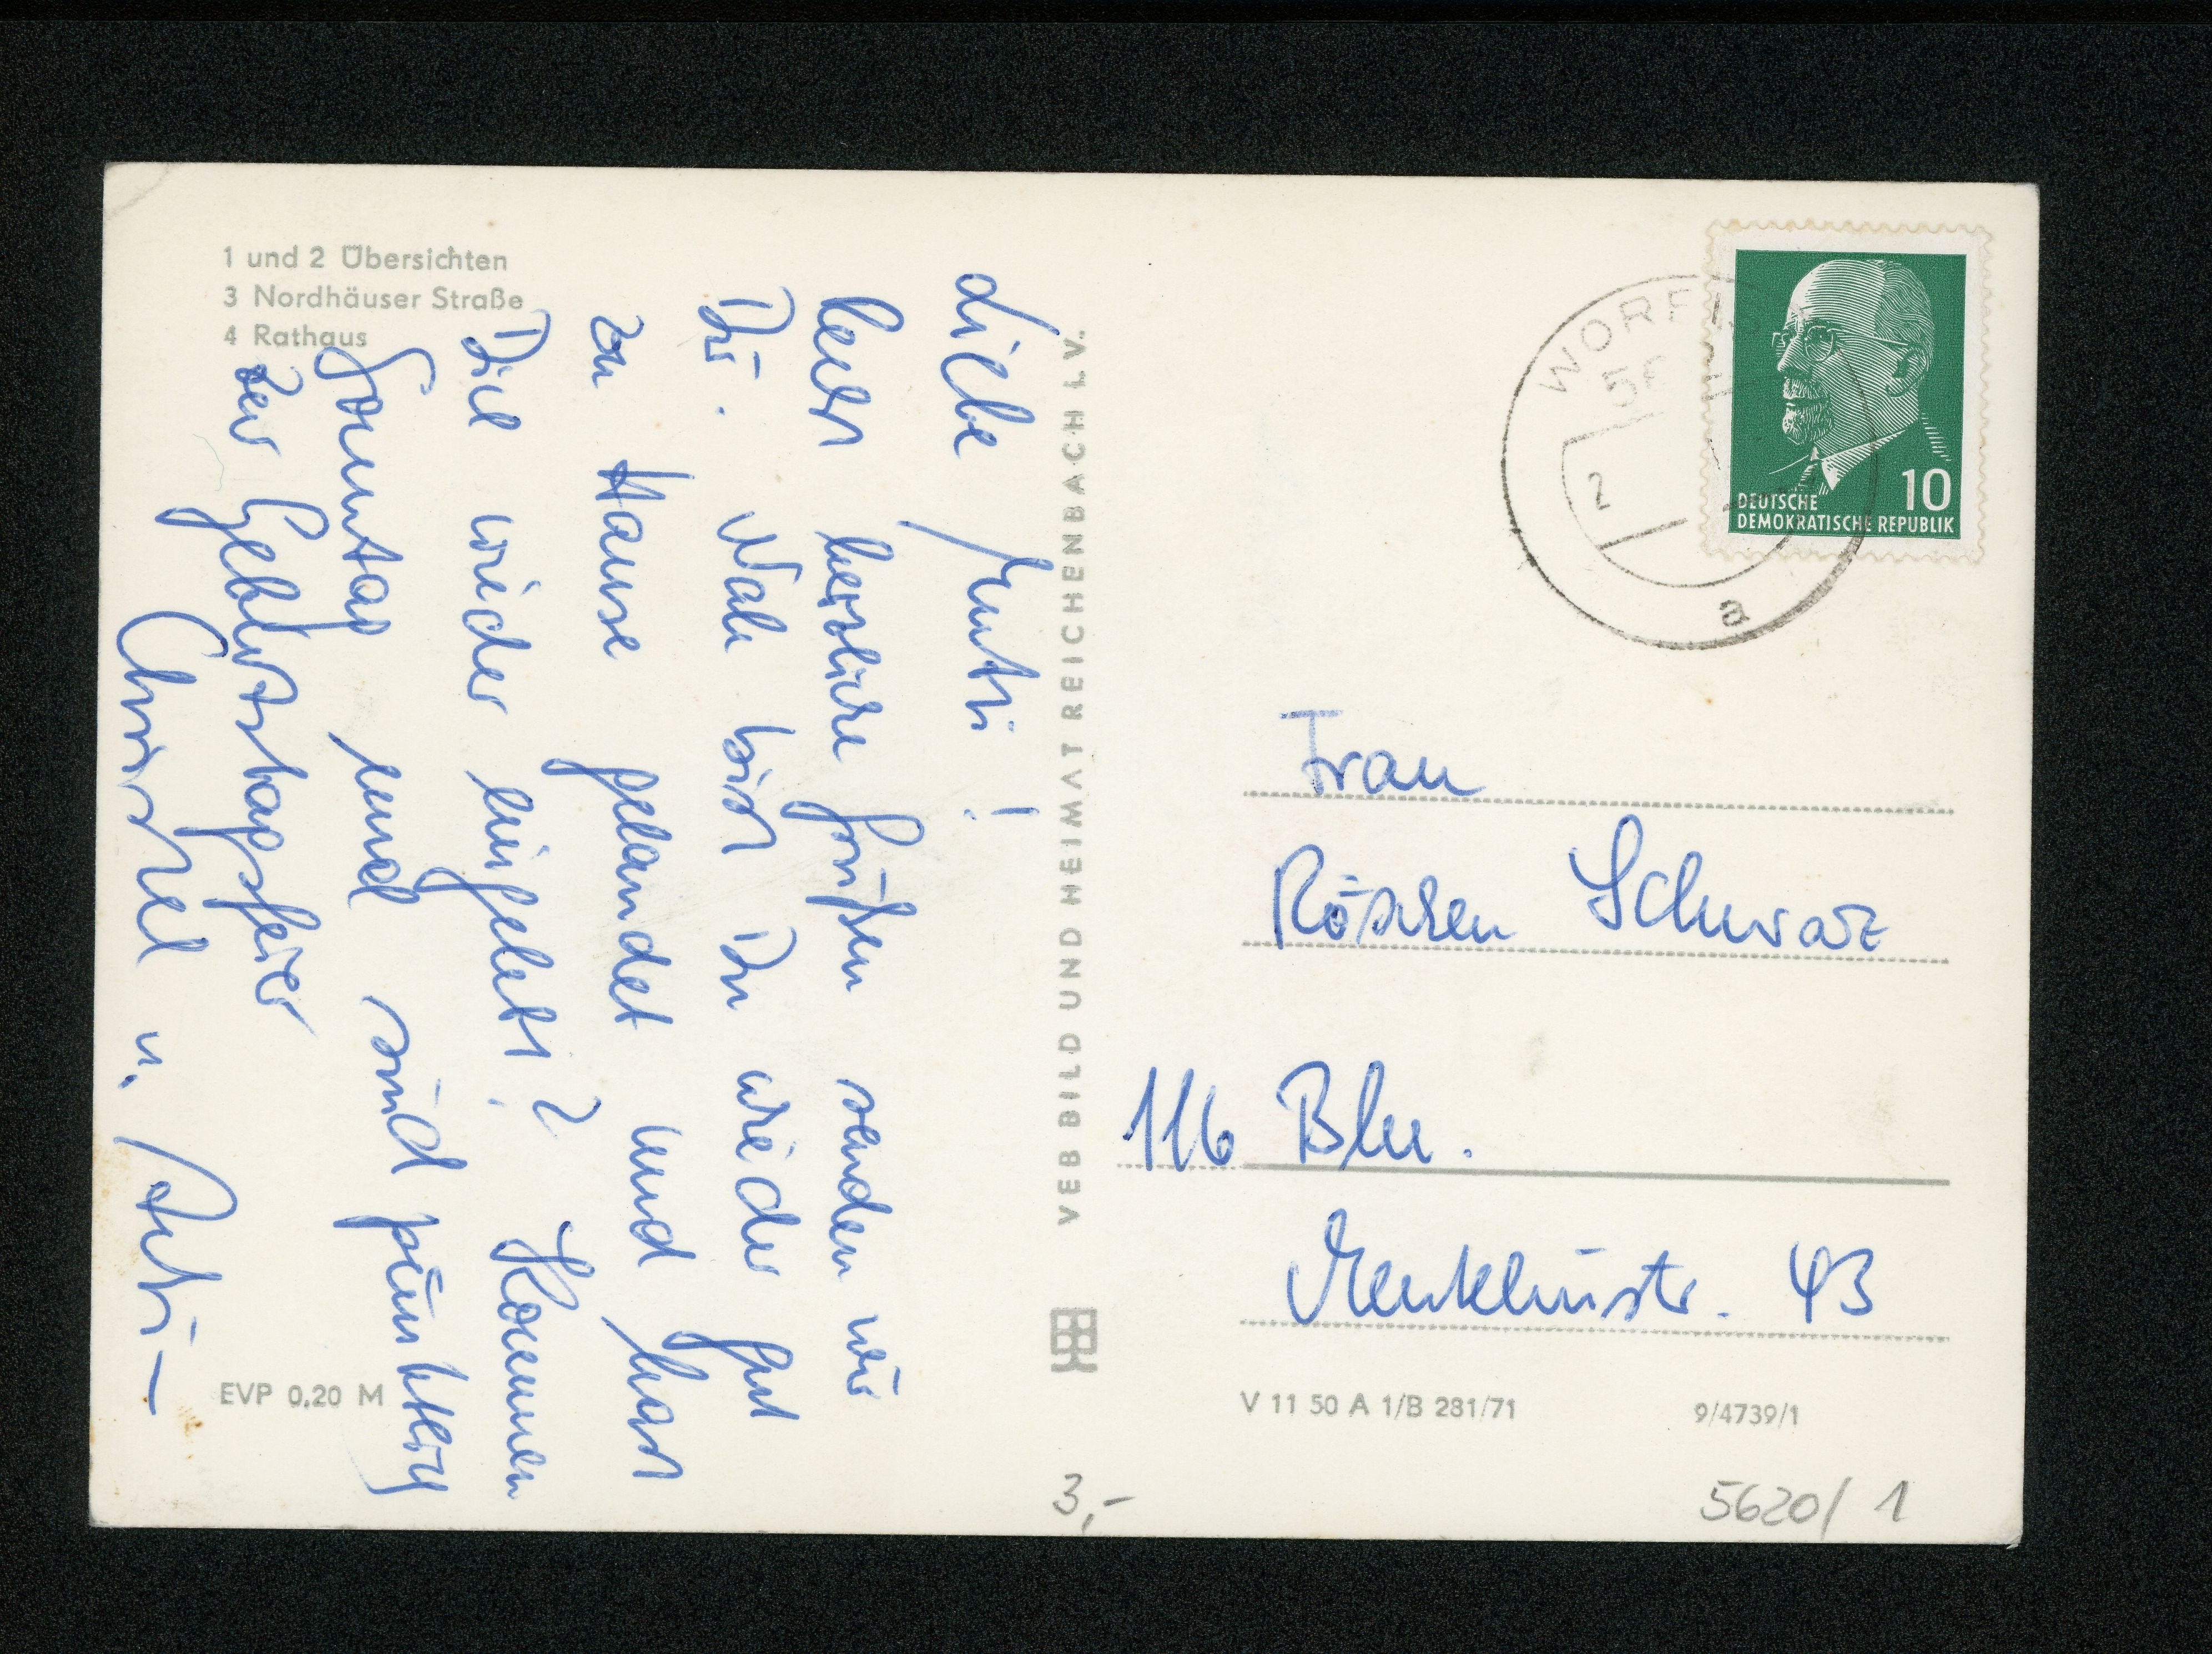 1 und 2 Übersichten
3 Nordhäuser Straße
4 Rathaus
Liebe Mutti!
herzliche Grüßen senden wir
Dir. Na bist Du wieder gut
zu Hause gelandet und hast
Dich wieder eingelebt? Kommen
Sonntag und sind pünktlich
zur Geburtstagsfeier
Christel u.
EVP 0,20 M
VEB BILD UND HEIMAT REICHENBACH I. V.
WORBIS
2
a
10
DEUTSCHE
DEMOKRATISCHE REPUBLIK
Frau
Röschen Schwarz
116 Bln.
43
V 11 50 A 1/B 281/71
9/4739/1
3,-
5620/1